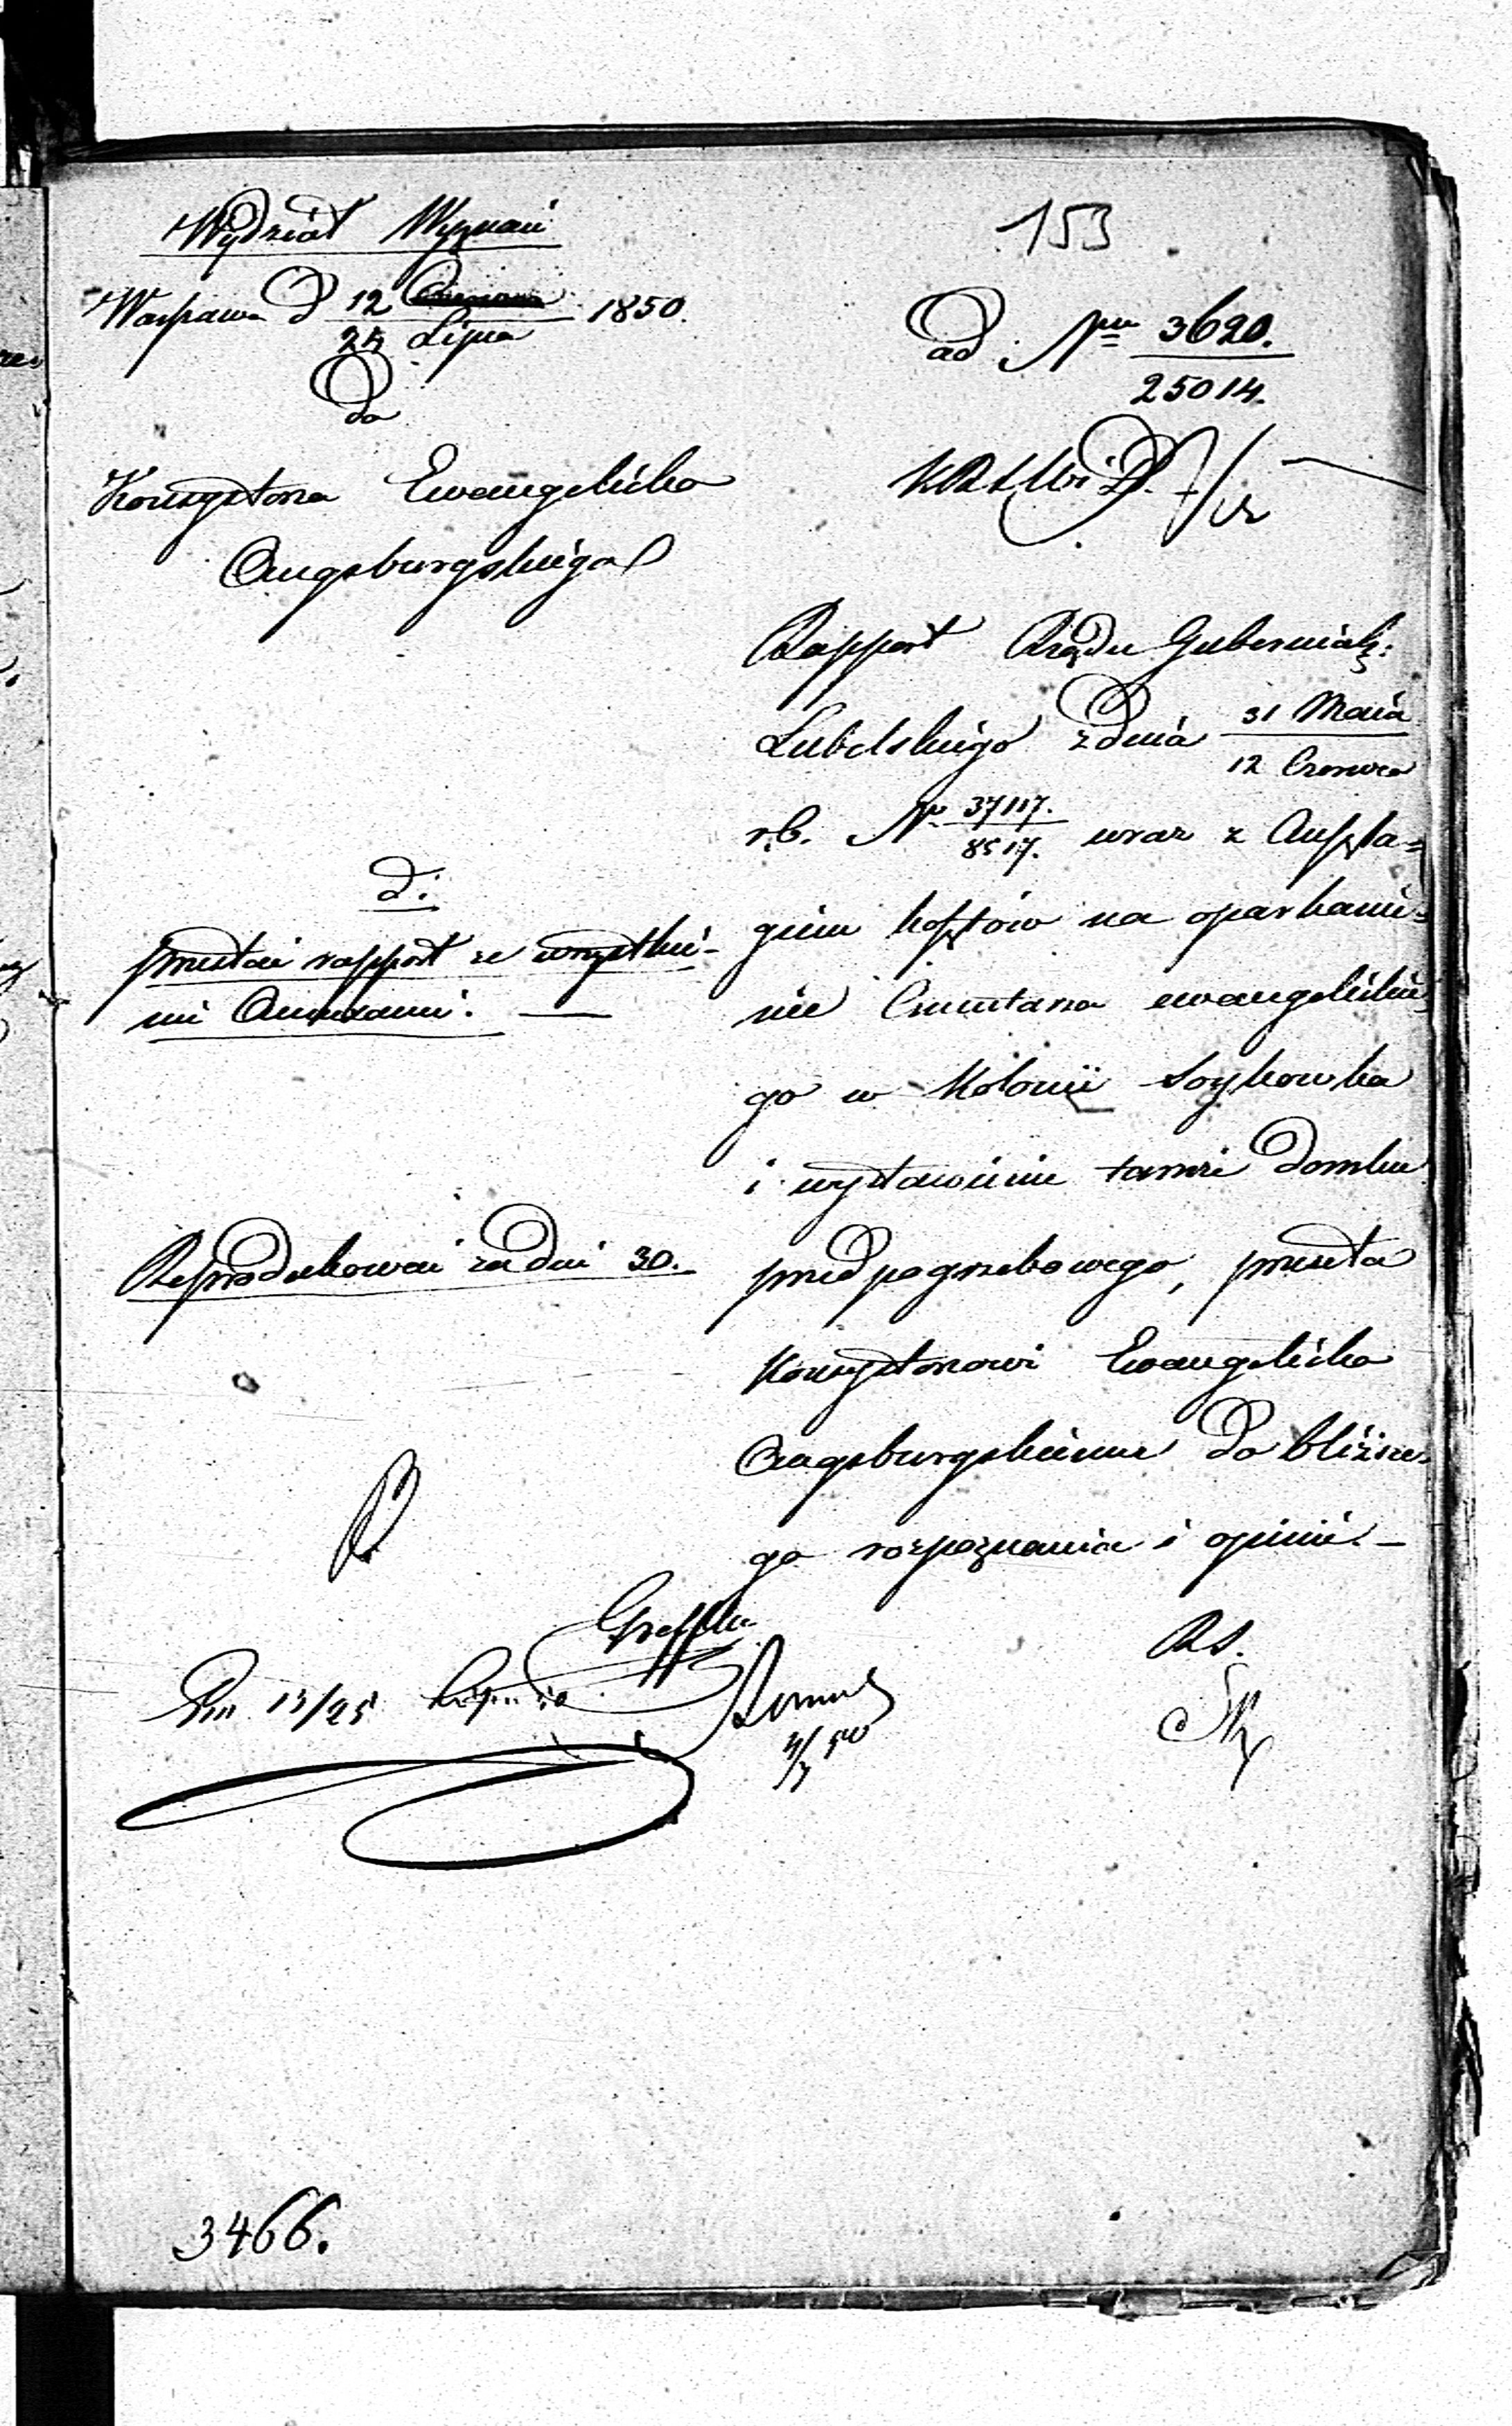 153
Wydział Wyznań
Warszawa d 12 Czerwca / 24 Lipca 1850.
Do
Konsystorza Ewangelicko
Augsburgskiego
ad Nru 3620. / 25014.
Rapport Rządu Gubernialg:
Lubelskiego z dnia 31 Maia / 12 Czerwca
r.b. No 37117. / 8517. wraz z Anszla=
giem kosztów na oparkanie=
nie Cmentarza ewangelickie
go w Kolonii Soykowka
i wystawienie tamże domku
przedpogrzebowego, przesła
Konsystorzowi Ewangelicko
Augsburgskiemu do bliższe=
go rozpoznania i opinii. —
d:
przesłać rapport ze wszystkie-
mi Annexami. —
Reprodukować za dni 30.
Dn 13/25 Lipca
RS.
3466.